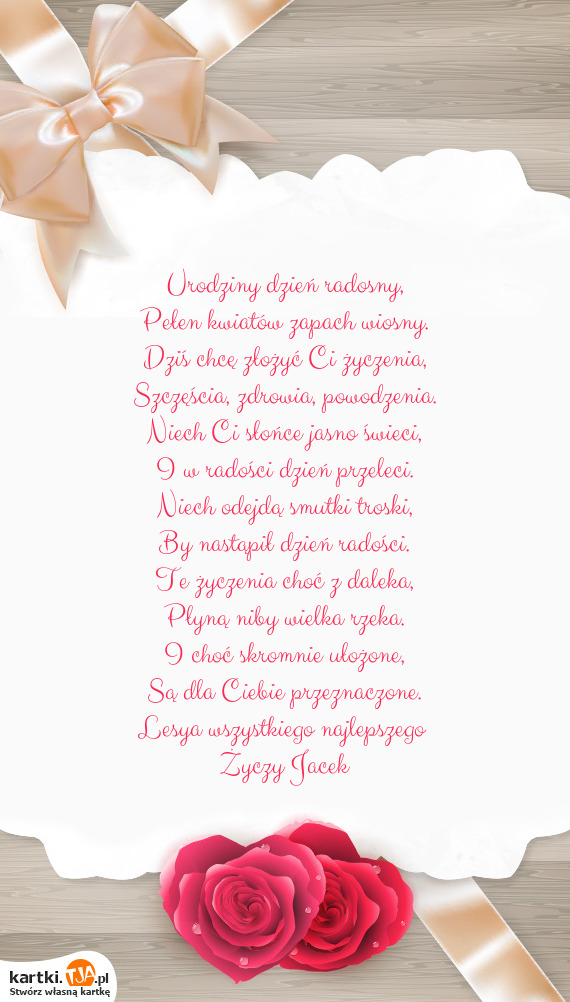 Urodziny dzień radosny,
Pełen kwiatów zapach wiosny.
Dziś chcę złożyć Ci życzenia,
Szczęścia, zdrowia, powodzenia.
Niech Ci słońce jasno świeci,
I w radości dzień przeleci.
Niech odejdą smutki troski,
By nastąpił dzień radości.
Te życzenia choć z daleka,
Płyną niby wielka rzeka.
I choć skromnie ułożone,
Są dla Ciebie przeznaczone.
Lesya wszystkiego najlepszego
Życzy Jacek
kartki.TJA.pl
Stwórz własną kartkę